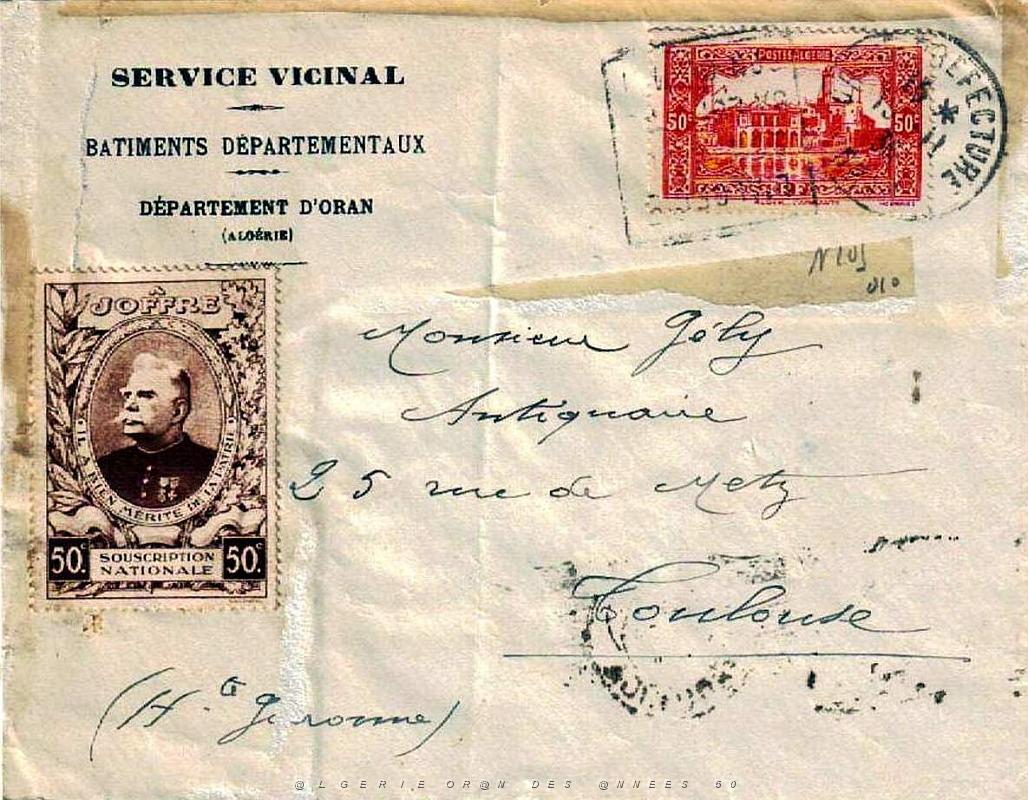 SERVICE VICINAL
BATIMENTS DÉPARTEMENTAUX
DÉPARTEMENT D'ORAN
(ALGÉRIE)
POSTES ALGERIE
50c 50c
PREFECTURE
N 105
010
À
JOFFRE
IL A BIEN MÉRITÉ DE LA PATRIE
50c. SOUSCRIPTION 50c.
NATIONALE
Monsieur Gély
Antiquaire
25 rue de Metz
Toulouse
(Hte Garonne)
@LGERIE OR@N DES @NNEES 50